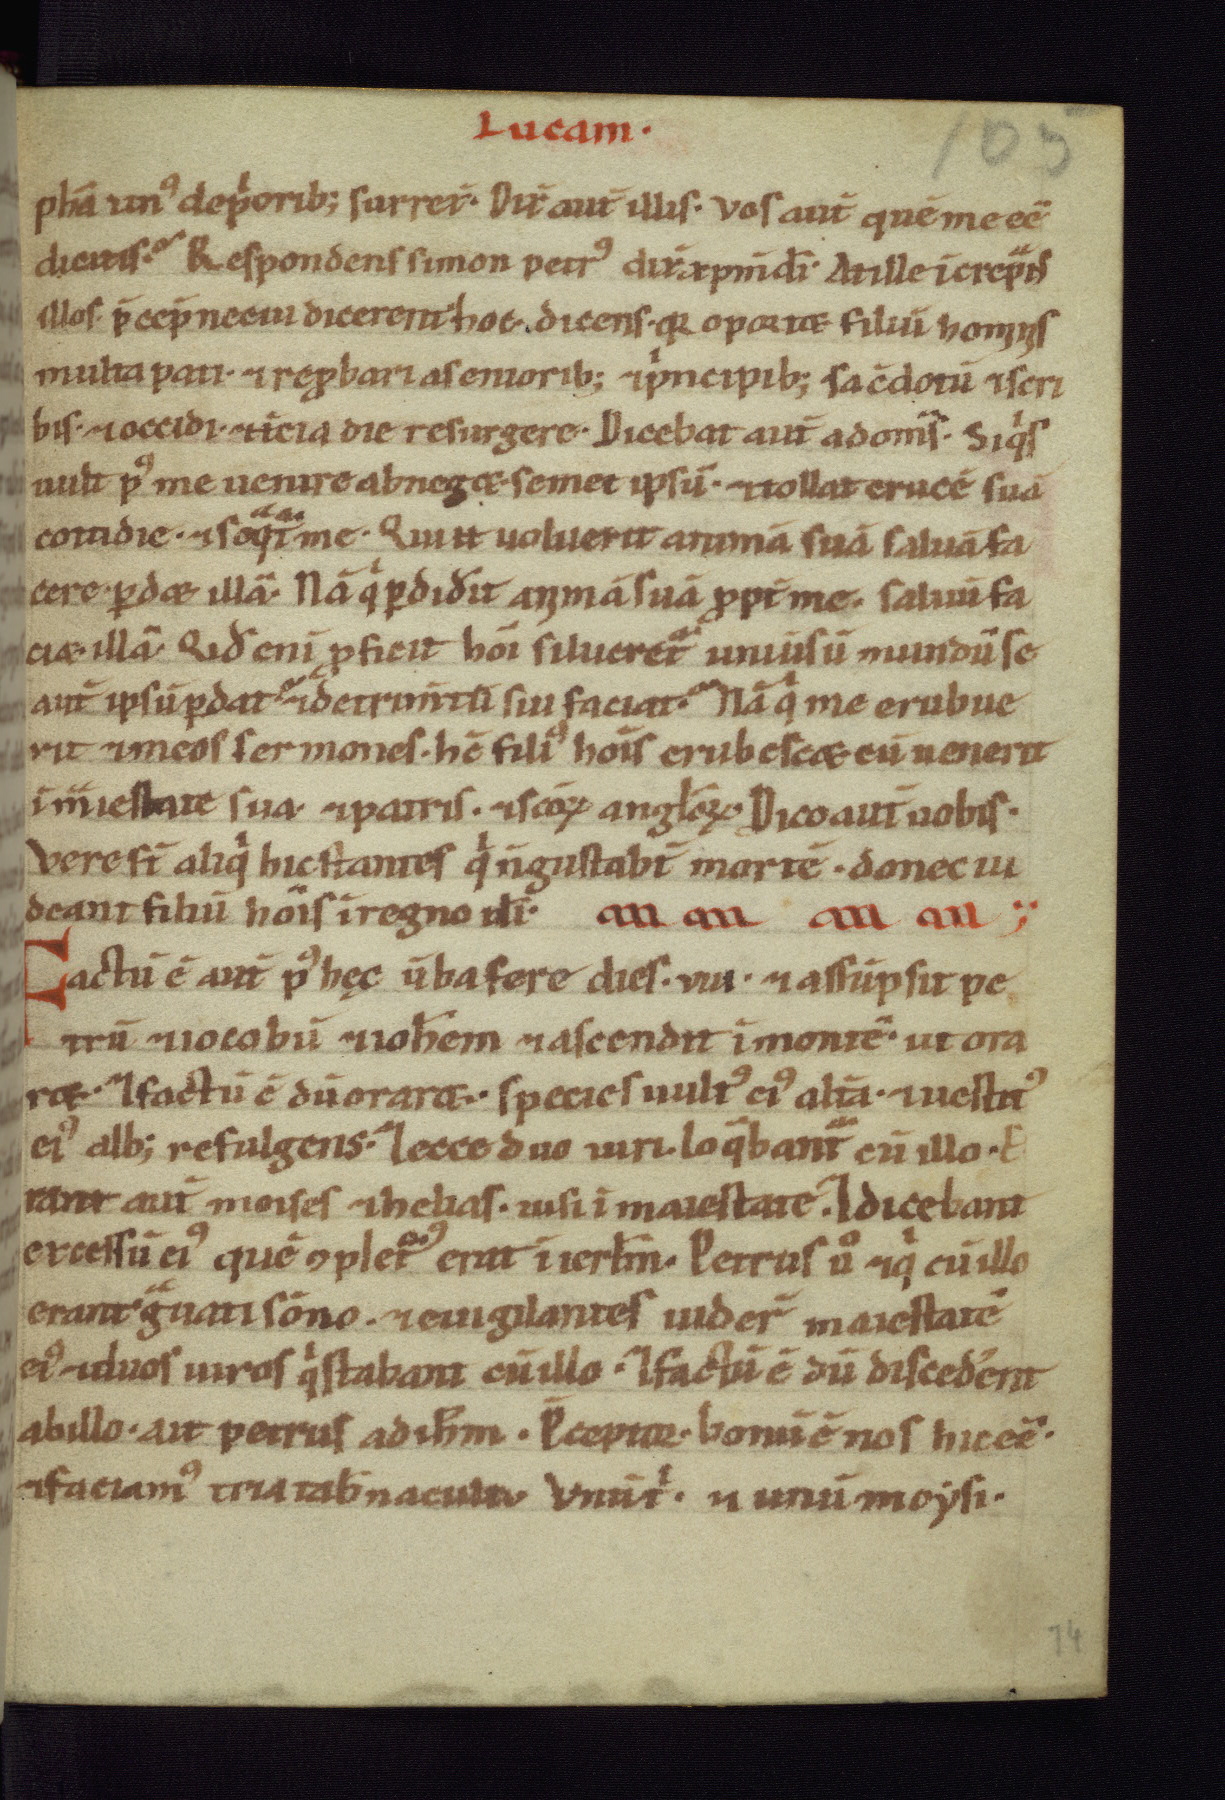 Lucam·
105
phā un⁹ de pͥorib; surrex̄· Dix̄ aut̄ illis· vos aut̄ quē me eē
dicitis· Respondens simon petr⁹ dix̄ xp̄m dī· At ille īcrepās
illos· p̄cep̄ ne cui dicerent hoc· dicens· qꝛ oportꝫ filiū hominis
multa pati· ⁊ rep̱bari a seniorib; ⁊ pͥncipib; sac̄dotū ⁊ scri
bis· ⁊ occidi· ⁊ t̄cia die resurgere· Dicebat aut̄ ad om̄s· Siqͥs
uult p⁹ me uenire abneget semet ipsū· ⁊ tollat crucē suā
cottidie· ⁊ seqᷓt̄ me· Qui u̅ uoluerit animā suā saluā fa
cere· ꝑdet illā· Nā qͥ ꝑdid̄it animā suā ꝓpt̄ me· saluū fa
ciet illā· Qid enī ꝓficit hōi si lucret᷑ uniūsū mundū se
aut̄ ipsū ꝑdat ⁊ detrim̄tū sui faciat· Nā qͥ me erubue
rit ⁊ meos sermones· hē fili⁹ hōis erubescet cū uenerit
ī maiestate sua ⁊ patris· ⁊ scōꝝ angl̄oꝝ· Dico aut̄ uobis·
Vere st̄ aliqͥ hic stantes qͥ n̄ gustabt̄ mortē· donec ui
deant filiū hōis ī regno dī·
Factū ē aut̄ p⁹ hęc ūba fere dies· viii· ⁊ assūpsit pe
trū ⁊ iocobū ⁊ ioh̄em ⁊ ascendit ī montē· ut ora
ret· ⁊ factū ē dū oraret· species uult⁹ ei⁹ alt̄a· ⁊ uestit⁹
ei⁹ alb; refulgens· ⁊ ecce duo uiri· loq̄bant᷑ cū illo· E
rant aut̄ moises ⁊ helias· uisi ī maiestate· ⁊ dicebant
excessū ei⁹ quē ꝯplet᷑⁹ erat ī ierl̄m· Petrus ū̊ ⁊ qͥ cū illo
erant gᷓuati sōno· ⁊ euigilantes uider̄ maiestatē
ei⁹ ⁊ duos uiros qͥ stabant cū illo· ⁊ factū ē dū disced̄ent
ab illo· ait petrus ad ih̄m· P̄ceptor· bonū ē nos hic eē·
⁊ faciam⁹ tria tab̄nacula Vnū tͥ· ⁊ unū moysi·
74